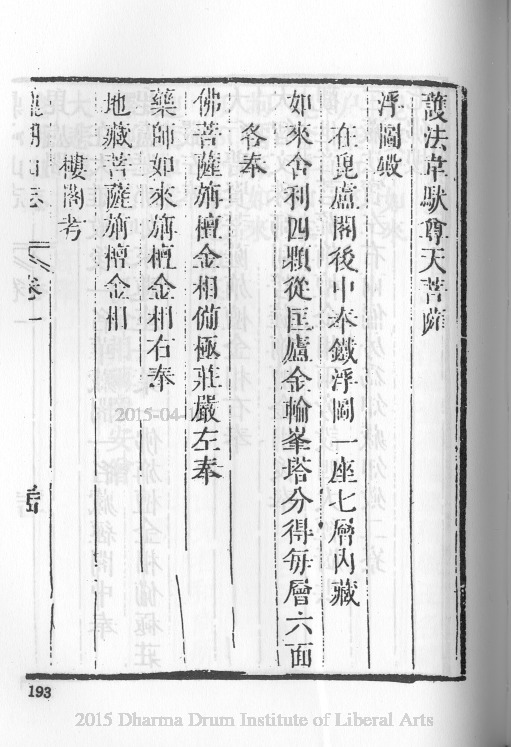 護法韋馱尊天菩薩
浮圖殿
在毘盧閣後中奉鐵浮圖一座七層內藏
如來舍利四顆從匡廬金輪峯塔分得每層六面
各奉
佛菩薩旃檀金相俻極莊嚴左奉
藥師如來旃檀金相右奉
地藏菩薩旃檀金相
樓閣考
山志 卷一
193
2015-04-1
2015 Dharma Drum Institute of Liberal Arts